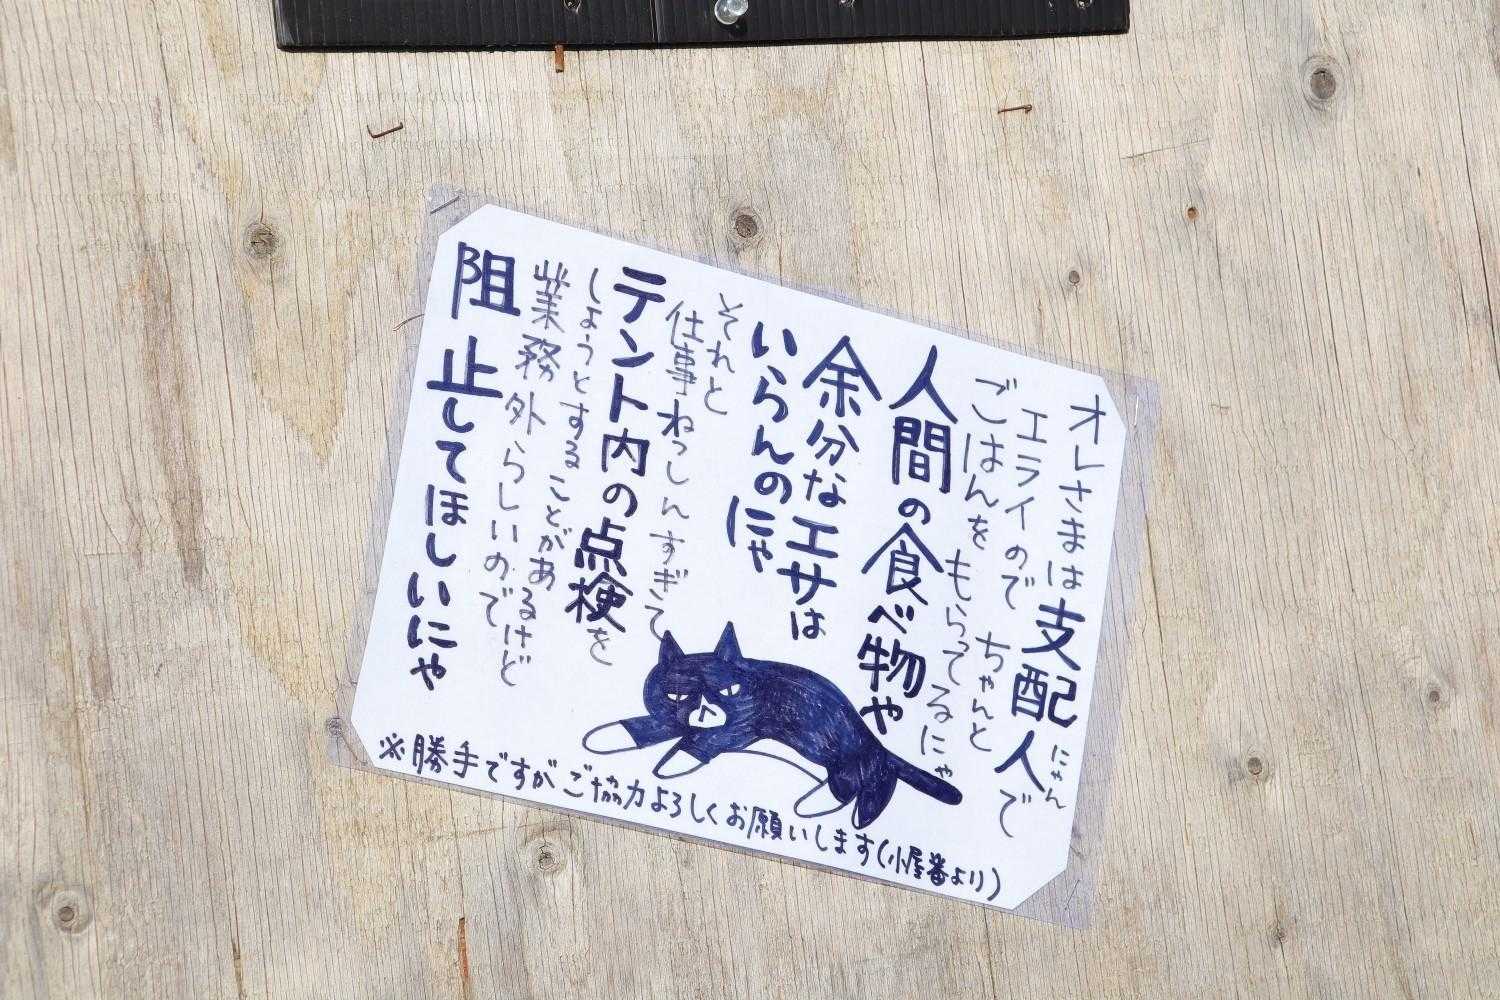 オレさまは支配人で
にゃん
エライので ちゃんと
ごはんを もらってるにゃ
人間の食べ物や
余分なエサは
いらんのにゃ
それと
仕事ねっしんすぎて
テント内の点検を
しようとすることがあるけど
業務外らしいのでで
阻止してほしいにゃ
※勝手ですがご協力よろしくお願いします(小屋番より)